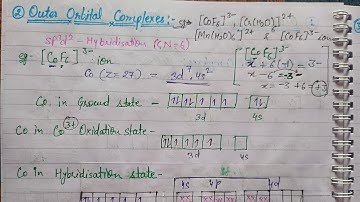 ② Outer Orbital Complexes:- eg → [CoF₆]³⁻, [Co(H₂O)₆]²⁺
[Mn(H₂O)₆]²⁺ & [CoF₆]³⁻ ion
sp³d² - Hybridisation (C.N = 6)
eg - [CoF₆]³⁻ ion
[CoF₆]³⁻
x + 6(-1) = 3-
Co (Z = 27) = 3d⁷ 4s²
x - 6 = -3
x = -3 + 6 = +3
Co, in Ground state - ↑↓ ↑↓ ↑ ↑ ↑ ↑↓
3d 4s
Co in Co³⁺ Oxidation state - ↑↓ ↑ ↑ ↑ ↑
3d 4s
Co in Hybridisation state -
4s 4p 4d